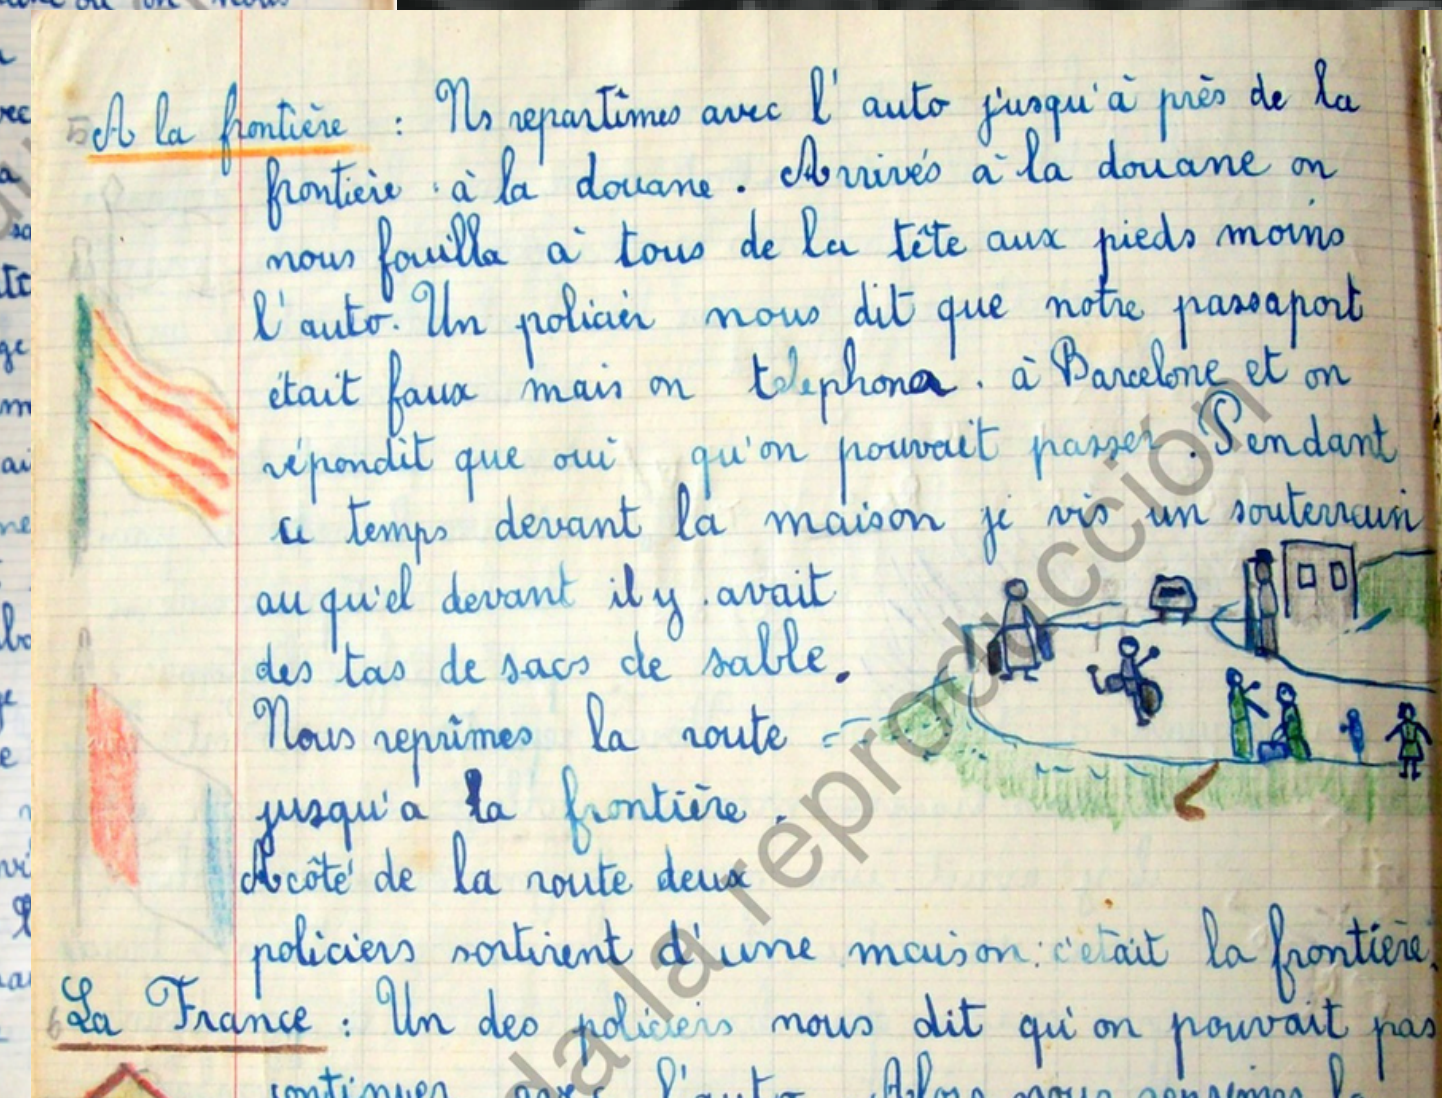 5 A la frontière : Ns repartîmes avec l' auto jusqu'à près de la
frontière à la douane. Arrivés à la douane on
nous fouilla à tous de la tête aux pieds moins
l'auto. Un policier nous dit que notre passaport
était faux mais on telephona. à Barcelone et on
répondit que oui qu'on pouvait passer. Pendant
ce temps devant la maison je vis un souterrain
au qu'el devant il y avait
des tas de sacs de sable.
Nous reprîmes la route
jusqu'a la frontière.
A côté de la route deux
policiers sortirent d'une maison: c'etait la frontière.
6 La France : Un des policiers nous dit qu'on pouvait pas
continuer avec l'auto. Alors nous
da la reproducción